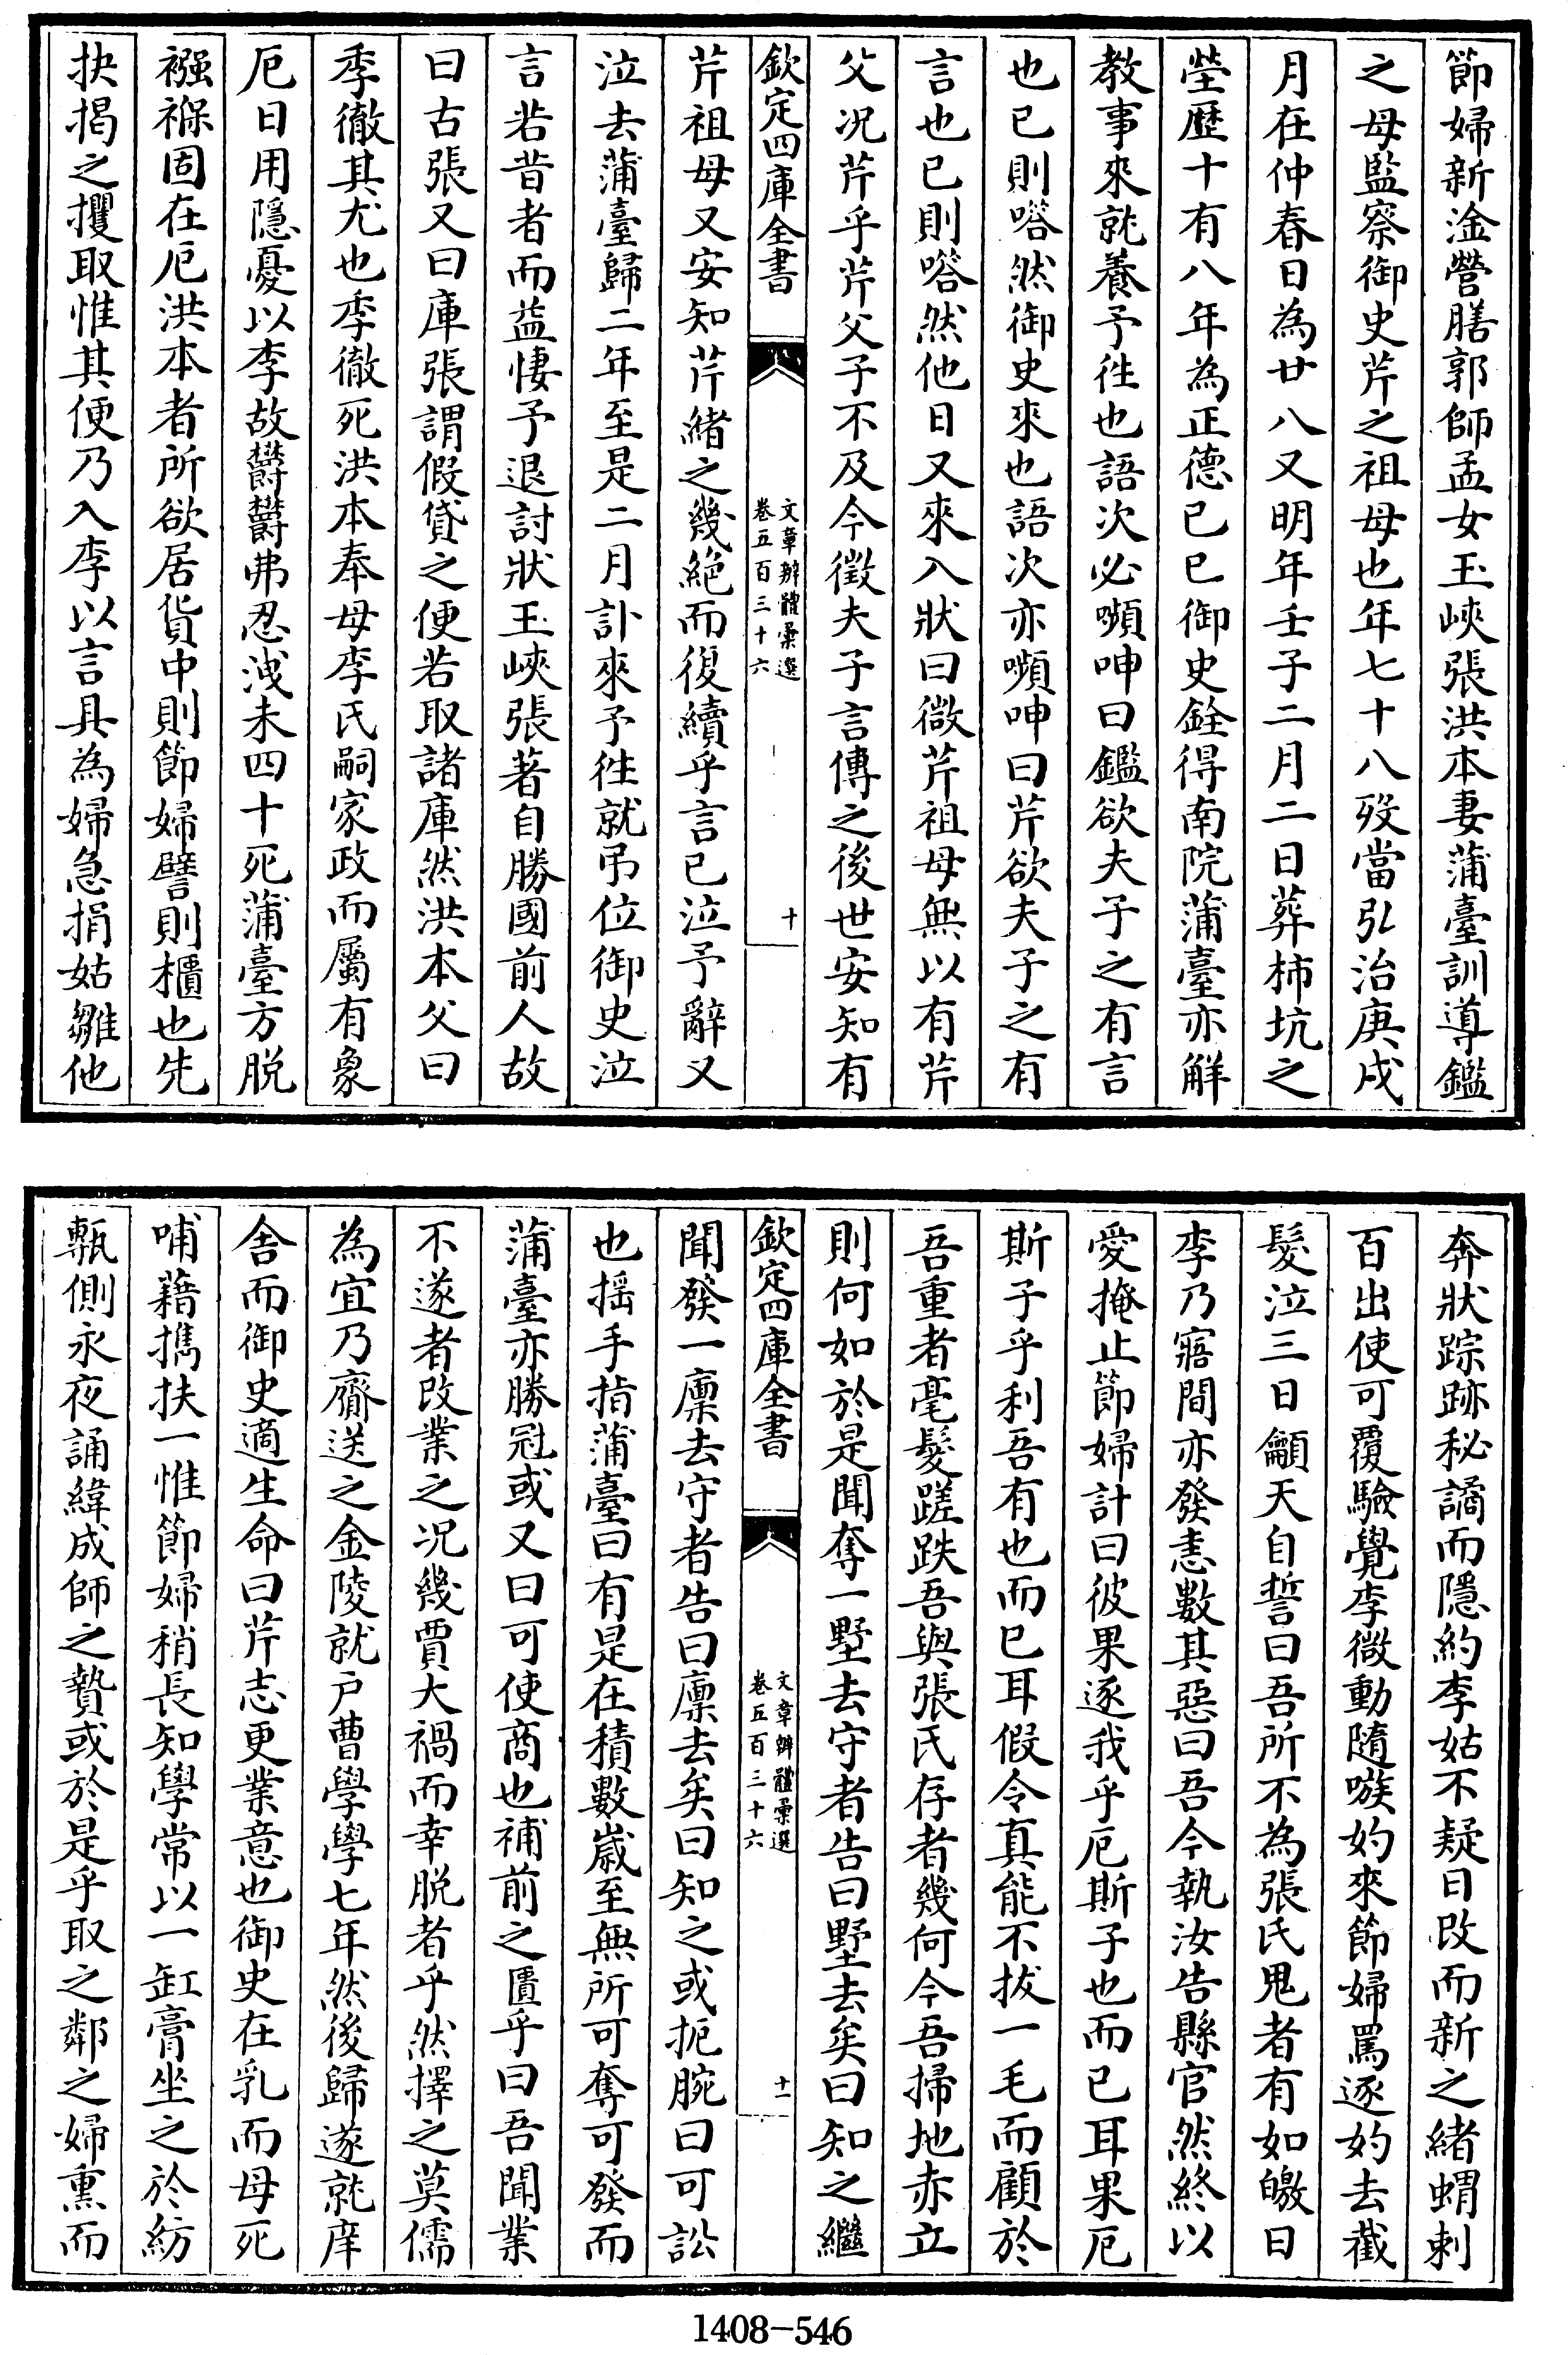 節婦新淦營膳郭師孟女玉峽張洪本妻蒲臺訓導鑑
之母監察御史芹之祖母也年七十八歿當弘治庚戌
月在仲春日為廿八又明年壬子二月二日葬柿坑之
塋歷十有八年為正德己巳御史銓得南院蒲臺亦解
教事來就養予往也語次必嚬呻曰鑑欲夫子之有言
也已則嗒然御史來也語次亦嚬呻曰芹欲夫子之有
言也已則嗒然他日又來入狀曰微芹祖母無以有芹
父况芹乎芹父子不及今徵夫子言傳之後世安知有
欽定四庫全書
文章辨體彙選
卷五百三十六
十
芹祖母又安知芹緒之幾絶而復續乎言已泣予辭又
泣去蒲臺歸二年至是二月訃來予往就弔位御史泣
言若昔者而益悽予退討狀玉峽張著自勝國前人故
曰古張又曰庫張謂假貸之便若取諸庫然洪本父曰
季徹其尤也季徹死洪本奉母李氏嗣家政而屬有象
厄日用隱憂以李故欝欝弗忍洩未四十死蒲臺方脱
襁褓固在厄洪本者所欲居貨中則節婦譬則櫃也先
抉揭之攫取惟其便乃入李以言具為婦急捐姑雛他
奔狀踪跡秘譎而隱約李姑不疑日改而新之緒蝟刺
百出使可覆驗覺李微動隨嗾妁來節婦罵逐妁去截
髮泣三日籲天自誓曰吾所不為張氏鬼者有如皦日
李乃寤間亦發恚數其惡曰吾今執汝告縣官然終以
愛掩止節婦計曰彼果逐我乎厄斯子也而已耳果厄
斯子乎利吾有也而已耳假令真能不拔一毛而顧於
吾重者毫髮蹉跌吾與張氏存者幾何今吾掃地赤立
則何如於是聞奪一墅去守者告曰墅去矣曰知之繼
欽定四庫全書
文章辨體彙選
卷五百三十六
十一
聞發一廪去守者告曰廪去矣曰知之或扼腕曰可訟
也摇手指蒲臺曰有是在積數嵗至無所可奪可發而
蒲臺亦勝冠或又曰可使商也補前之匱乎曰吾聞業
不遂者改業之况幾賈大禍而幸脱者乎然擇之莫儒
為宜乃齎送之金陵就戸曹學學七年然後歸遂就庠
舍而御史適生命曰芹志更業意也御史在乳而母死
哺藉携扶一惟節婦稍長知學常以一缸膏坐之於紡
甎側永夜誦緯成師之贄或於是乎取之鄰之婦熏而
1408-546